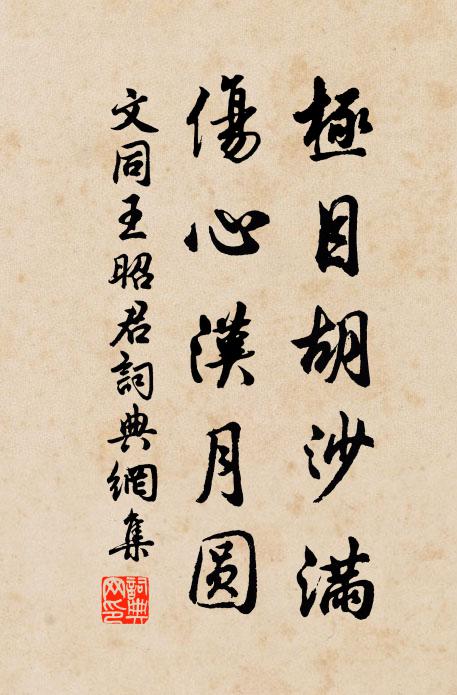 極目胡沙滿
傷心漢月圓
文同王昭君詞典網集
詞典網印